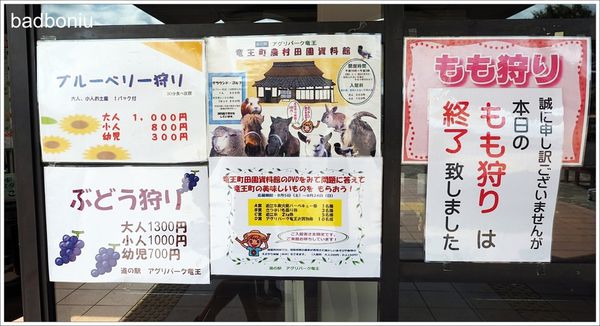 badboniu
ブルーベリー狩り
30分食べ放題
大人、小人お土産 1パック付
大人 1,000円
小人 800円
幼児 300円
ぶどう狩り
大人1300円
小人1000円
幼児700円
道の駅 アグリパーク竜王
道の駅 アグリパーク竜王
竜王町農村田園資料館
開館時間
入館料
竜王町田園資料館のDVDをみて問題に答えて
竜王町の美味しいものを もらおう!
道の駅 アグリパーク竜王
もも狩り
誠に申し訳ございませんが
本日の
もも狩り は
終了 致しました